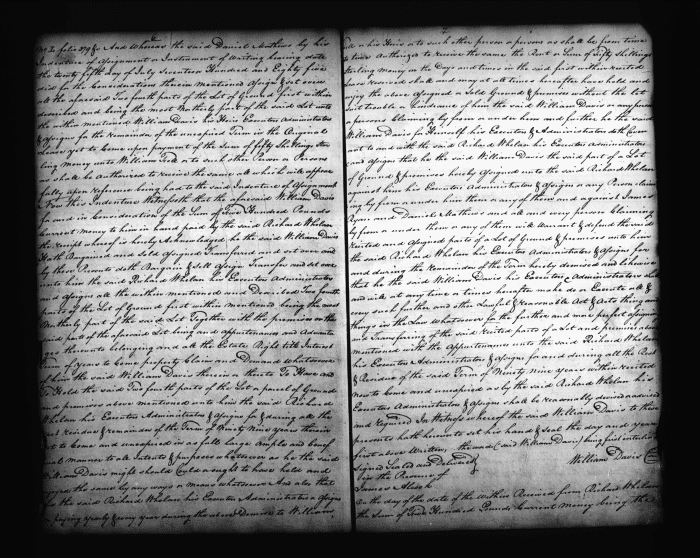 folio 379 And Whereas the said Daniel Mathews by his
Indenture of Assignment or Instrument of Writing bearing date
the twenty fifth Day of July Seventeen Hundred and Eighty five
did for the Considerations therein Mentioned Assign
all the aforesaid Two fourth parts of the Lot of Ground first within
described and being the most Northerly part of the said Lot unto
the within mentioned William Davis his Heirs Executors Administrators
& Assigns for the remainder of the unexpired Term in the Original
Lease yet to Come upon payment of the Sum of fifty Shillings Ster
ling Money unto William or to such other Person or Persons
as shall be Authorized to receive the same all which will appear
fully upon reference being had to the said Indenture of Assignment
Now this Indenture Witnesseth that the aforesaid William Davis
for and in Consideration of the Sum of Hundred Pounds
Current Money to him in hand paid by the said Richard Whelan
the receipt whereof is hereby Acknowledged he the said William Davis
Hath Bargained and Sold Assigned Transferred and set over and
by these Presents doth Bargain & Sell Assign Transfer and set over
unto him the said Richard Whelan his Executors Administrators
and Assigns all the within mentioned and Described Two fourth
parts of the Lot of Ground first within mentioned being the most
Northerly part of the said Lot Together with the premises on the
said parts of the aforesaid Lot being and appurtenances and Advanta
ges thereunto belonging and all the Estate Right Title Interest
Term of years to Come property Claim and Demand whatsoever
of him the said William Davis therein or thereto To Have and
To Hold the said Two fourth parts of the Lot or parcel of Ground
and premises above mentioned unto him the said Richard
Whelan his Executors Administrators & Assigns for & during all the
rest residue & remainder of the Term of Ninety Nine years therein
yet to Come and unexpired in as full large Ample and benef
icial manner to all Intents & purposes whatsoever as he the said
William Davis might should Could or ought to have held and
enjoyed the same by any ways or means whatsoever And also that
he the said Richard Whelan his Executors Administrators or Assigns
paying yearly & every year during the above Demise to William
or his Heirs or to such other person or persons as shall be from time
to time Authorized to receive the same the Rent or Sum of Fifty Shillings
Sterling Money on the Days and times in the said first within recited
Lease reserved shall and may at all times hereafter have hold and
enjoy the above Assigned & Sold Ground & premises without the let
suit trouble or Hindrance of him the said William Davis or any person
or persons Claiming by from or under him and further he the said
William Davis for Himself his Executors & Administrators doth Coven
ant to and with the said Richard Whelan his Executors Administrators
and Assigns that he the said William Davis the said part of a Lot
of Ground & premises hereby Assigned unto the said Richard Whelan
his Executors Administrators & Assigns or any Person claim
ing by from or under him them or any of them and against James
Ryan and Daniel Mathews and all and every person Claiming
by from or under them or any of them will Warrant & defend the said
recited and Assigned parts of a Lot of Ground & premises unto him
the said Richard Whelan his Executors Administrators & Assigns for
and during the remainder of the Term hereby demised and likewise
that he the said William Davis his Executors or Administrators shall
and will at any time or times hereafter make do or Execute all &
every such further and other Lawful & reasonable Act & Acts thing and
things in the Law whatsoever for the further and more perfect Assigning
and Transferring of the said recited parts of a Lot and premises above
mentioned with the Appurtenances unto the said Richard Whelan
his Executors Administrators & Assigns for and during all the Rest
& Residue of the said Term of Ninety nine years within recited
now to Come and unexpired as by the said Richard Whelan his
Executors Administrators & Assigns shall be reasonably devised advised
and required In Witness whereof the said William Davis to these
presents hath hereunto set his hand & Seal the day and year
first above Written, the said William Davis being first
Signed Sealed and Delivered
in the Presence of
William Davis
James
On the day of the date of the within Received from Richard Whelan
the Sum of Hundred Pounds Current Money being the